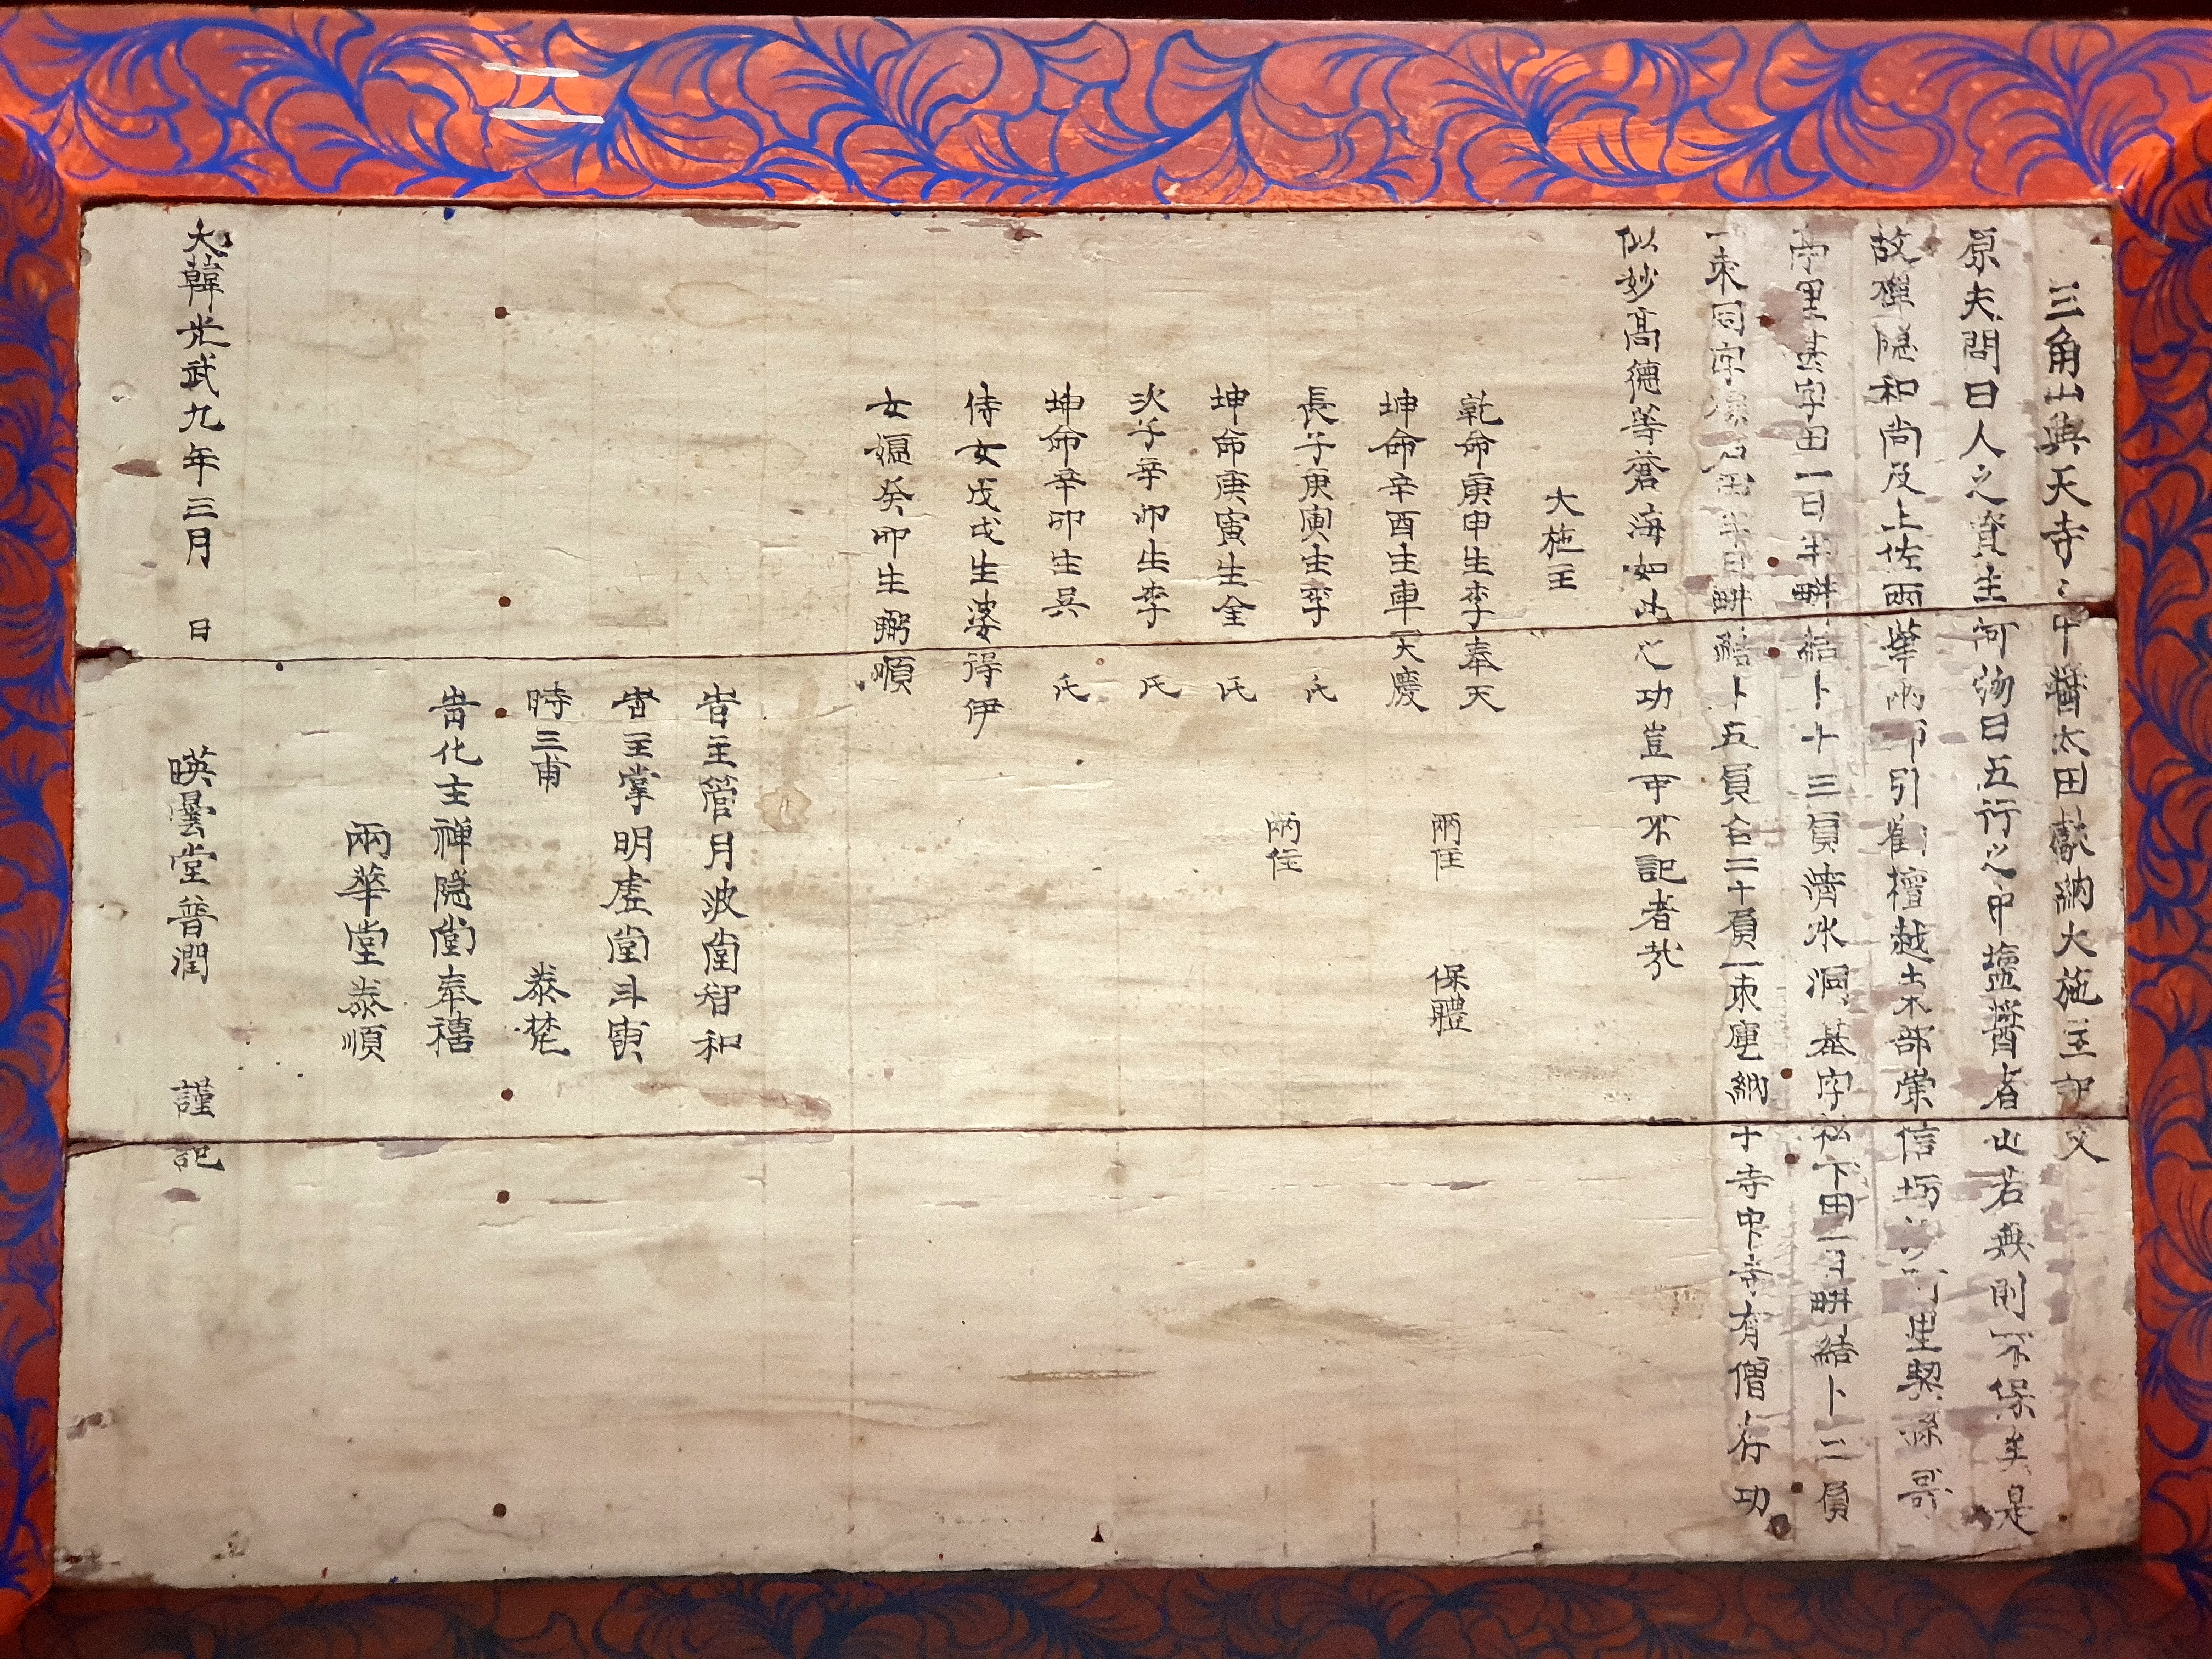 三角山興天寺〻中醬太田獻納大施主記文
原夫問曰人之資生何物曰五行之中塩醬者也若無則不保生是
故禪隱和尚及上佐兩華 引勸檀越土木部崇信坊 里契
里基字田一日半畊結卜十三負濟水洞基字私下田一日畊結卜三負
一束同字 田半日畊結卜五負合二十負一束 納于寺中寺有僧有功
似妙高德等蒼海如此之功豈可不記者哉
大施主
乾命庚申生李奉天
坤命辛酉生車天慶
兩位
保體
長子庚寅生李 氏
坤命庚寅生全 氏
兩位
次子辛卯生李 氏
坤命辛卯生吳 氏
侍女戊戌生婆得伊
女媼癸卯生 順
旹主管月波堂智和
旹主掌明虛堂斗寅
時三甫 泰梵
旹化主禅隱堂奉禧
兩華堂泰順
大韓光武九年三月 日 暎曇堂普潤 謹記